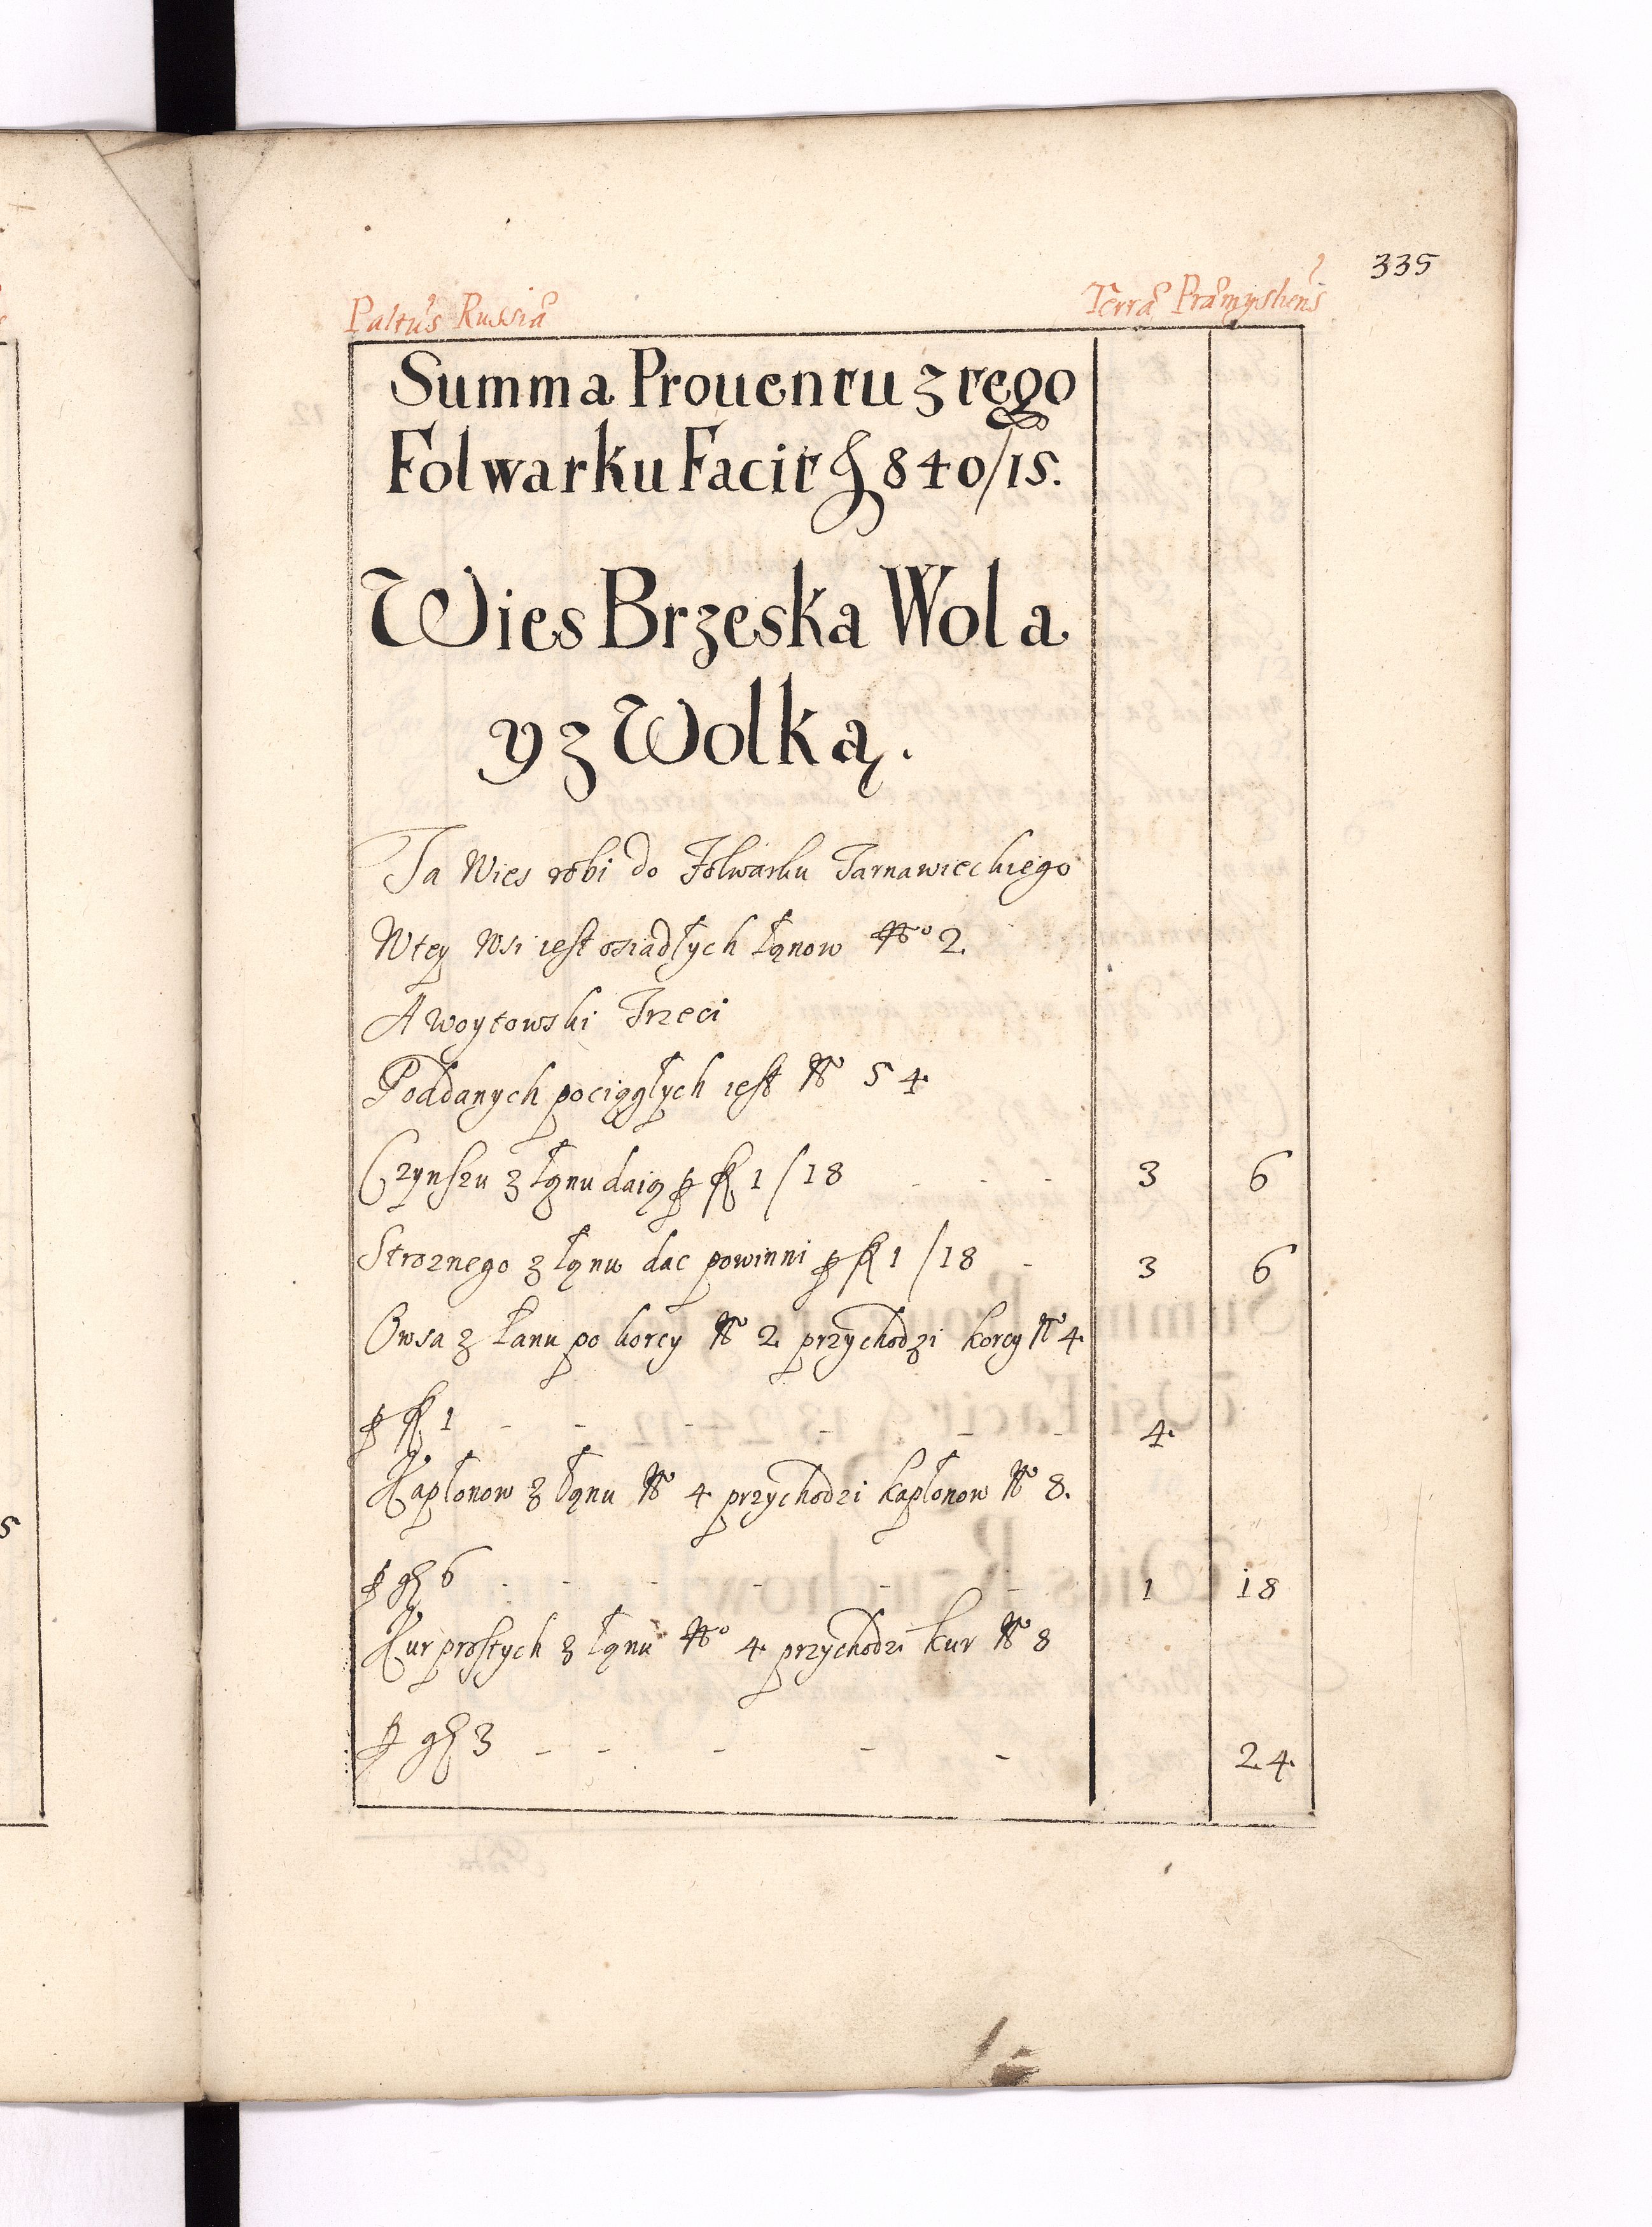 335
Palt͠us Russiæ
Terræ Præmyslien͠s
Summa Prouentu z tego
Folwarku Facit fl 840/15.
Wies Brzeska Wola
y z Wolką.
Ta Wies robi do Folwarku Tarnawieckiego
W tey Wsi iest osiadłych Łanow No 2
A woytowski Trzeci
Poddanych pociągłych iest No 54
Czynszu z łąnu daią p fl 1/18 - - - 3 6
Stroznego z łąnu dac powinni p fl 1/18 - 3 6
Owsa z Łanu po korcy No 2 przychodzi korcy No 4
p fl 1 - - - - - - 4
Kapłonow z łąnu No 4 przychodzi kapłonow No 8.
p gr 6 - - - - - - 1 18
Kur prostych z łąnu No 4 przychodzi kur No 8
p gr 3 - - - - - 24
5